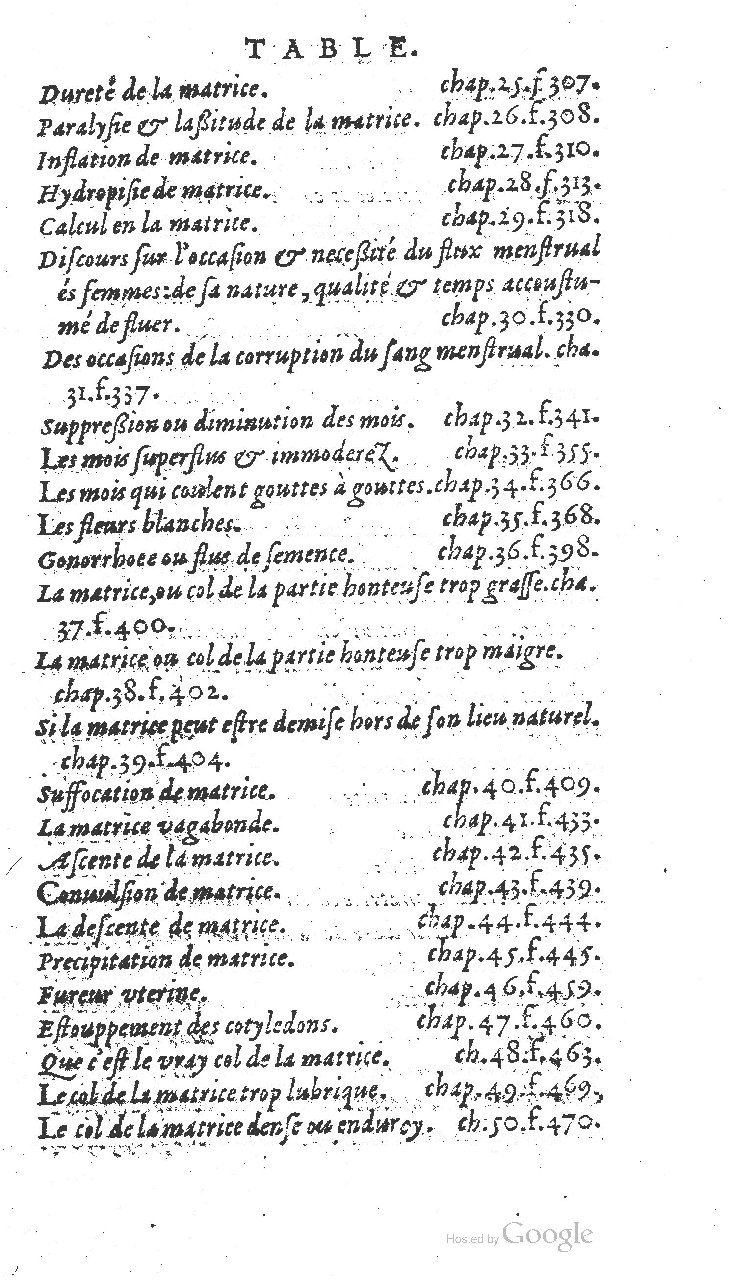 TABLE.
Dureté de la matrice. chap.25.f.307.
Paralyſie & laßitude de la matrice. chap.26.f.308.
Inflation de matrice. chap.27.f.310.
Hydropiſie de matrice. chap.28.f.313.
Calcul en la matrice. chap.29.f.318.
Diſcours ſur l'occaſion & neceßité du flux menſtrual
és femmes: de ſa nature, qualité & temps accouſtu-
mé de fluer. chap.30.f.330.
Des occaſions de la corruption du ſang menſtrual. cha.
31.f.337.
Suppreßion ou diminution des mois. chap.32.f.341.
Les mois ſuperflus & immoderez. chap.33.f.355.
Les mois qui coulent gouttes à gouttes. chap.34.f.366.
Les fleurs blanches. chap.35.f.368.
Gonorrhoee ou flus de ſemence. chap.36.f.398.
La matrice, ou col de la partie honteuſe trop graſſe. cha.
37.f.400.
La matrice ou col de la partie honteuſe trop maigre.
chap.38.f.402.
Si la matrice peut eſtre demiſe hors de ſon lieu naturel.
chap.39.f.404.
Suffocation de matrice. chap.40.f.409.
La matrice vagabonde. chap.41.f.433.
Aſcente de la matrice. chap.42.f.435.
Conuulſion de matrice. chap.43.f.439.
La deſcente de matrice. chap.44.f.444.
Precipitation de matrice. chap.45.f.445.
Fureur vterine. chap.46.f.459.
Eſtouppement des cotyledons. chap.47.f.460.
Que c'eſt le vray col de la matrice. ch.48.f.463.
Le col de la matrice trop lubrique. chap.49.f.469,
Le col de la matrice denſe ou endurcy. ch.50.f.470.
Hosted by Google